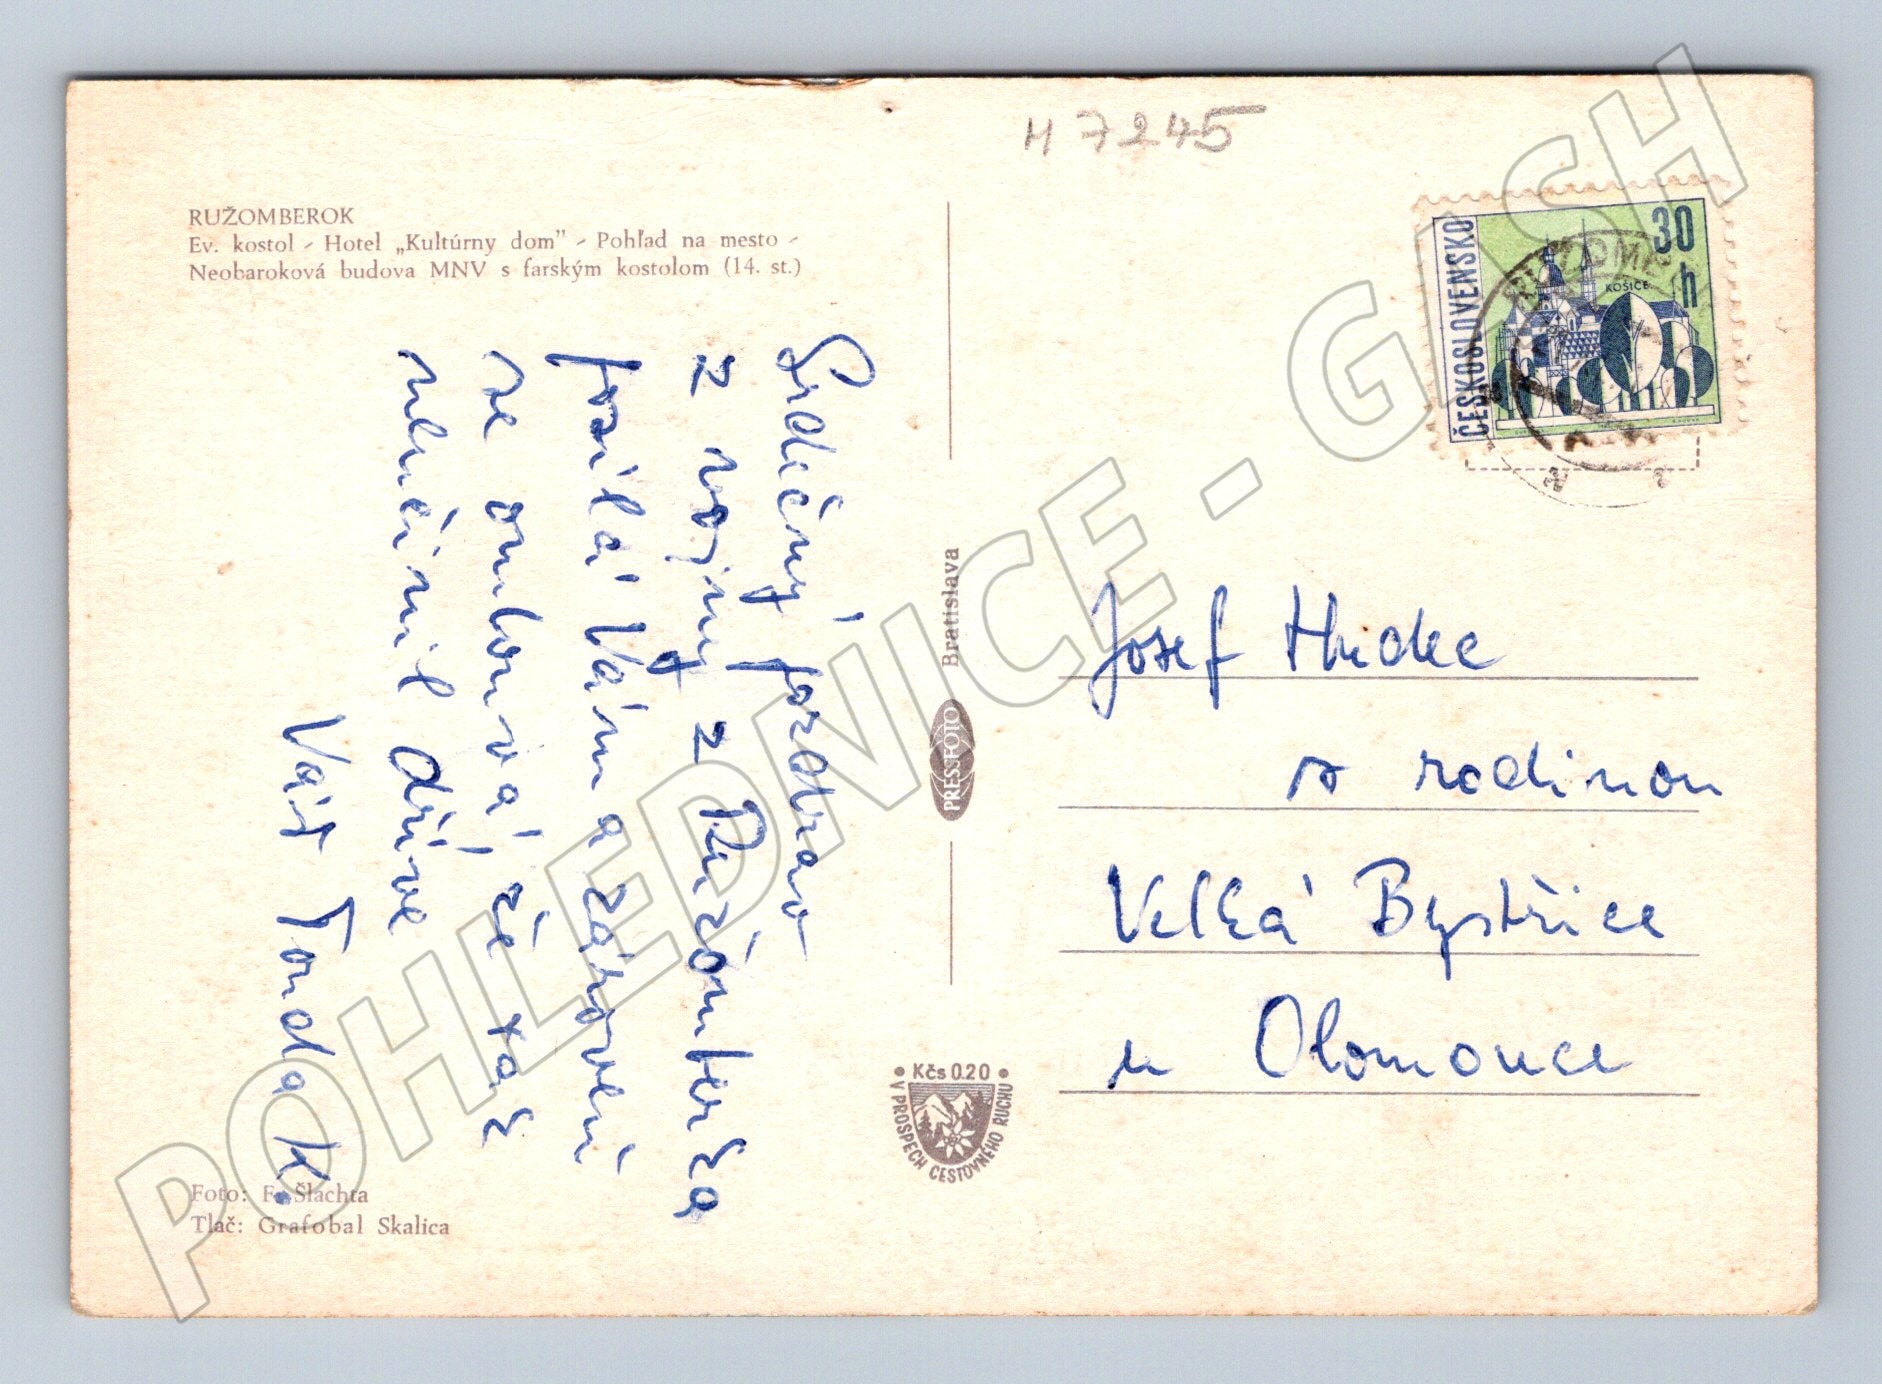 H 7245
RUŽOMBEROK
Ev. kostol - Hotel „Kultúrny dom" - Pohľad na mesto -
Neobaroková budova MNV s farským kostolom (14. st.)
Srdečný pozdrav
z vojny z Ružomberka
posílá Vám a zároveň
se omlouvá že tak
neučinil dříve
Váš Tonda K.
Foto: F. Šlachta
Tlač: Grafobal Skalica
Bratislava
PRESSFOTO
Kčs 0.20
V PROSPECH CESTOVNÉHO RUCHU
ČESKOSLOVENSKO
30 h
KOŠICE
Josef
s rodinou
Velká Bystřice
u Olomouce
POHLEDNICE - GASH